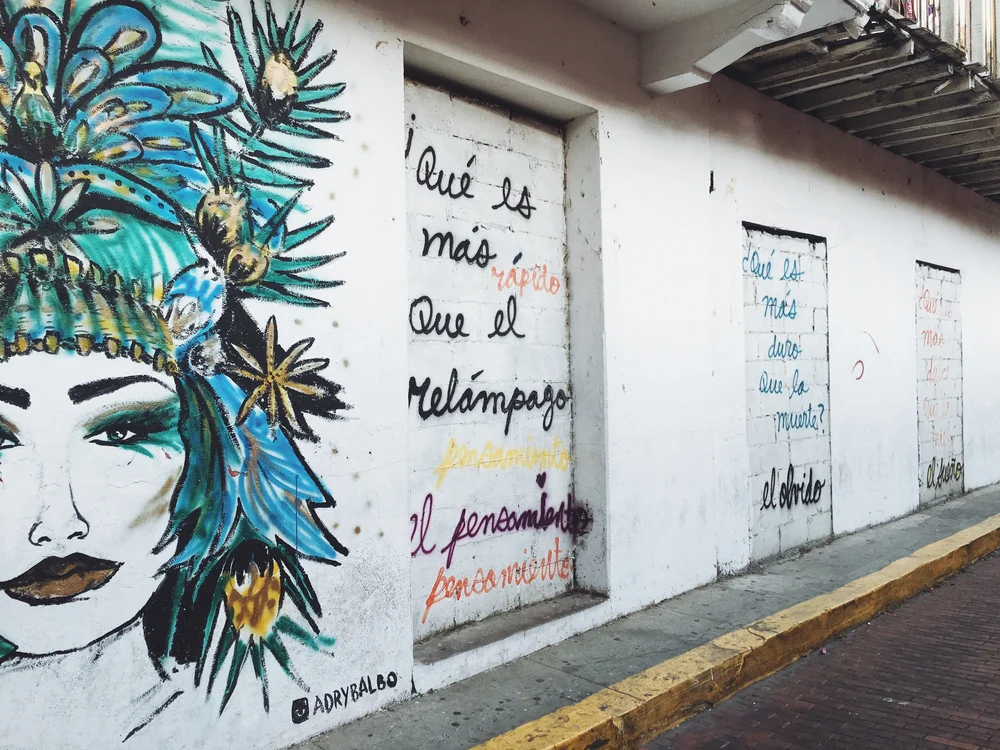 ¡Qué es
más
rápido
Que el
relámpago
pensamiento
el pensamiento
pensamiento
¿Qué es
más
duro
Que la
muerte?
el olvido
más
el sueño
ADRYBALBO